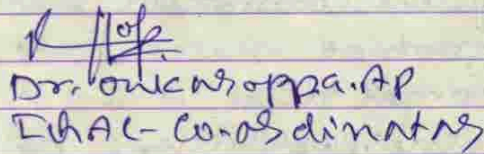 Dr. Onkarappa.AP
IQAC-Co.ordinator